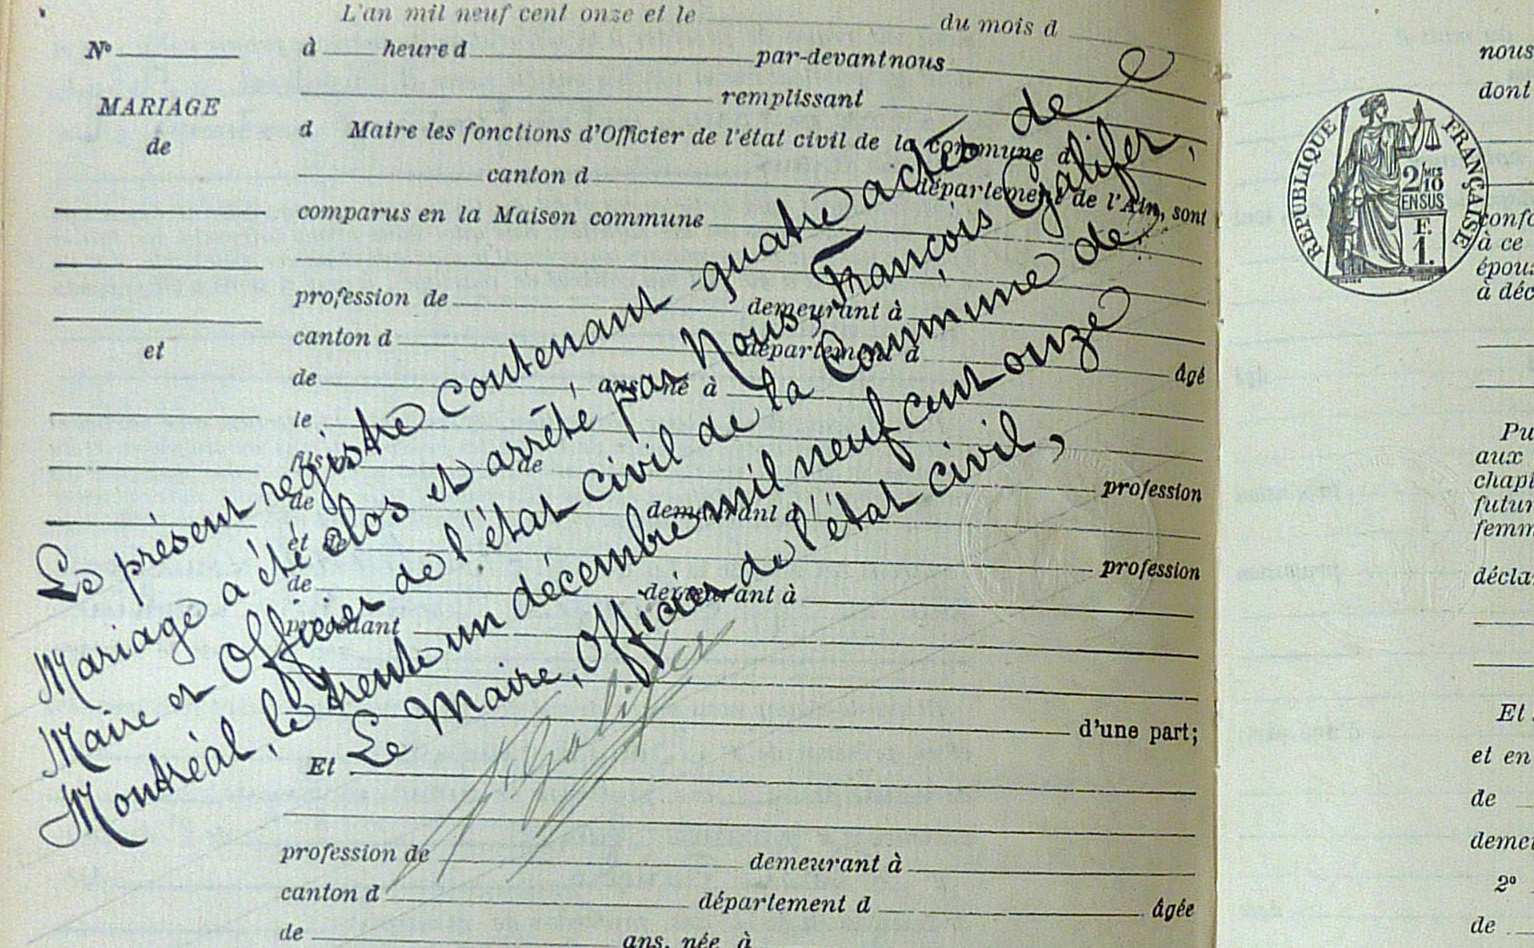 L'an mil neuf cent onze et le du mois d
N° à heure d par-devant nous
MARIAGE
de
remplissant
d Maire les fonctions d'Officier de l'état civil de la commune d
canton d département de l'Ain, sont
comparus en la Maison commune
profession de demeurant à
canton d département d
et
de ans, né à âgé
le
fils de
de demeurant à profession
et de
de demeurant à profession
procédant
d'une part;
Et
profession de demeurant à
canton d département d âgée
de ans, née à
Le présent registre contenant quatre actes de
Mariage a été clos et arrêté par Nous, François Galifer,
Maire et Officier de l'état civil de la Commune de
Montréal, le trente un décembre mil neuf cent onze
Le Maire, Officier de l'état civil,
Galifer
RÉPUBLIQUE FRANÇAISE
2/10 MES
EN SUS
F.
1.
nous
dont
confo
à ce
épou
à déc
Pu
aux
chapi
futur
femm
décla
Et
et en
de
demeu
2°
de